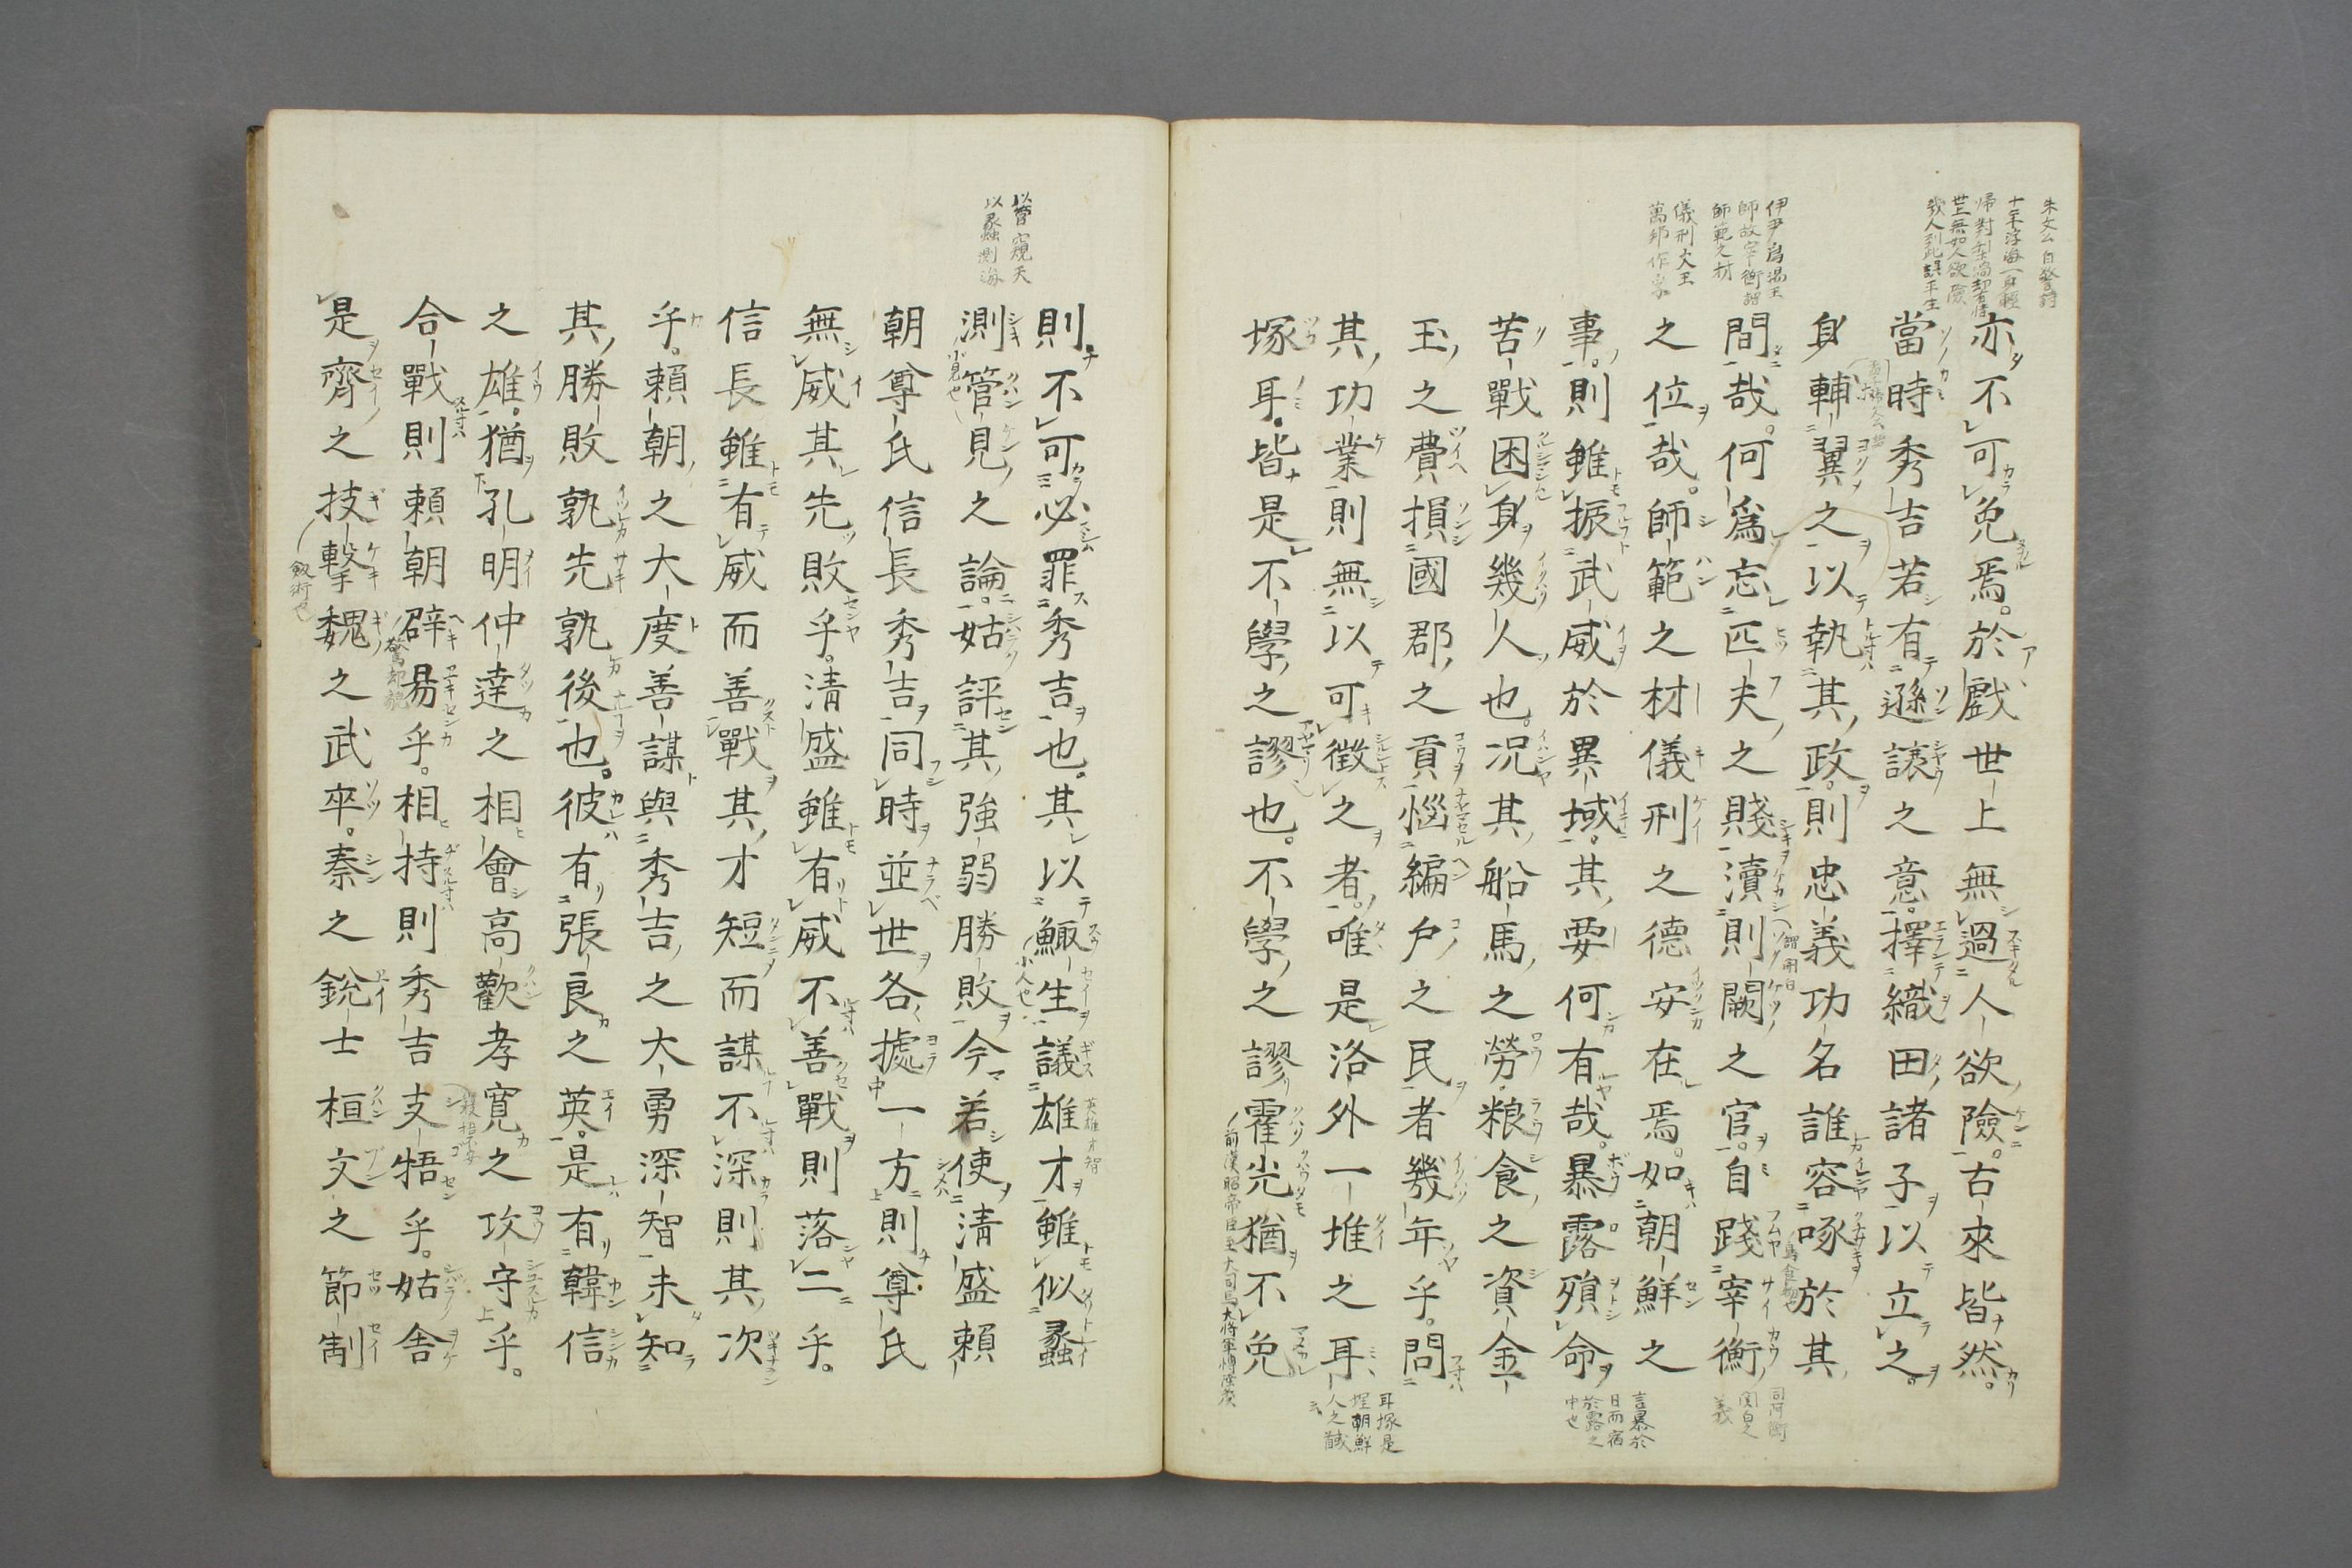 亦不可免焉。於戲世上無過人欲險。古來皆然。
當時秀吉若有遜讓之意。擇織田諸子以立之。
身輔翼之以執其政。則忠義功名誰容啄於其
間哉。何爲忘匹夫之賤瀆則闕之官。自踐宰衡
之位哉。師範之材儀刑之德安在焉。如朝鮮之
事。則雖振武威於異域。其要何有哉。暴露殞命
苦戰困身幾人也。况其船馬之勞粮食之資金
玉之費損國郡之貢惱編戶之民者幾年乎。問
其功業則無以可徵之者。唯是洛外一堆之耳
塚耳。皆是不學之謬也。不學之謬霍光猶不免
則不可必罪秀吉也。其以鯫生議雄才雖似蠡
測管見之論。姑評其強弱勝敗今若使淸盛賴
朝尊氏信長秀吉同時並世各據一方則尊氏
無威其先敗乎。淸盛雖有威不善戰則落二乎。
信長雖有威而善戰其才短而謀不深則其次
乎。賴朝之大度善謀與秀吉之大勇深智未知
其勝敗孰先孰後也。彼有張良之英。是有韓信
之雄。猶孔明仲達之相會高歡孝寬之攻守乎。
合戰則賴朝辟易乎。相持則秀吉支牾乎。姑舍
是齊之技擊魏之武卒。秦之銳士桓文之節制
朱文公自警詩
十年浮海一身輕
歸對梨渦却有情
世上無如人欲險
幾人到此誤平生
伊尹爲湯王
師故宰衡謂
師範之材
儀刑文王
萬邦作孚
言暴於
日而宿
於露之
中也
耳塚是
埋朝鮮
人之馘
以管窺天
以蠡測海
小見也
小人也
英雄才智
劒術也